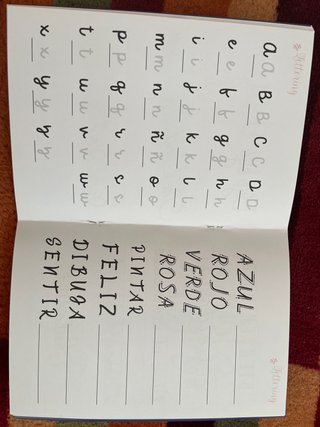 Lettering
a a B B C C D D
e e f f g g h h
i i j j k k l l
m m n n ñ ñ o o
p p q q r r s s
t t u u v v w w
x x y y z z
Lettering
AZUL
ROJO
VERDE
ROSA
PINTAR
FELIZ
DIBUJA
SENTIR